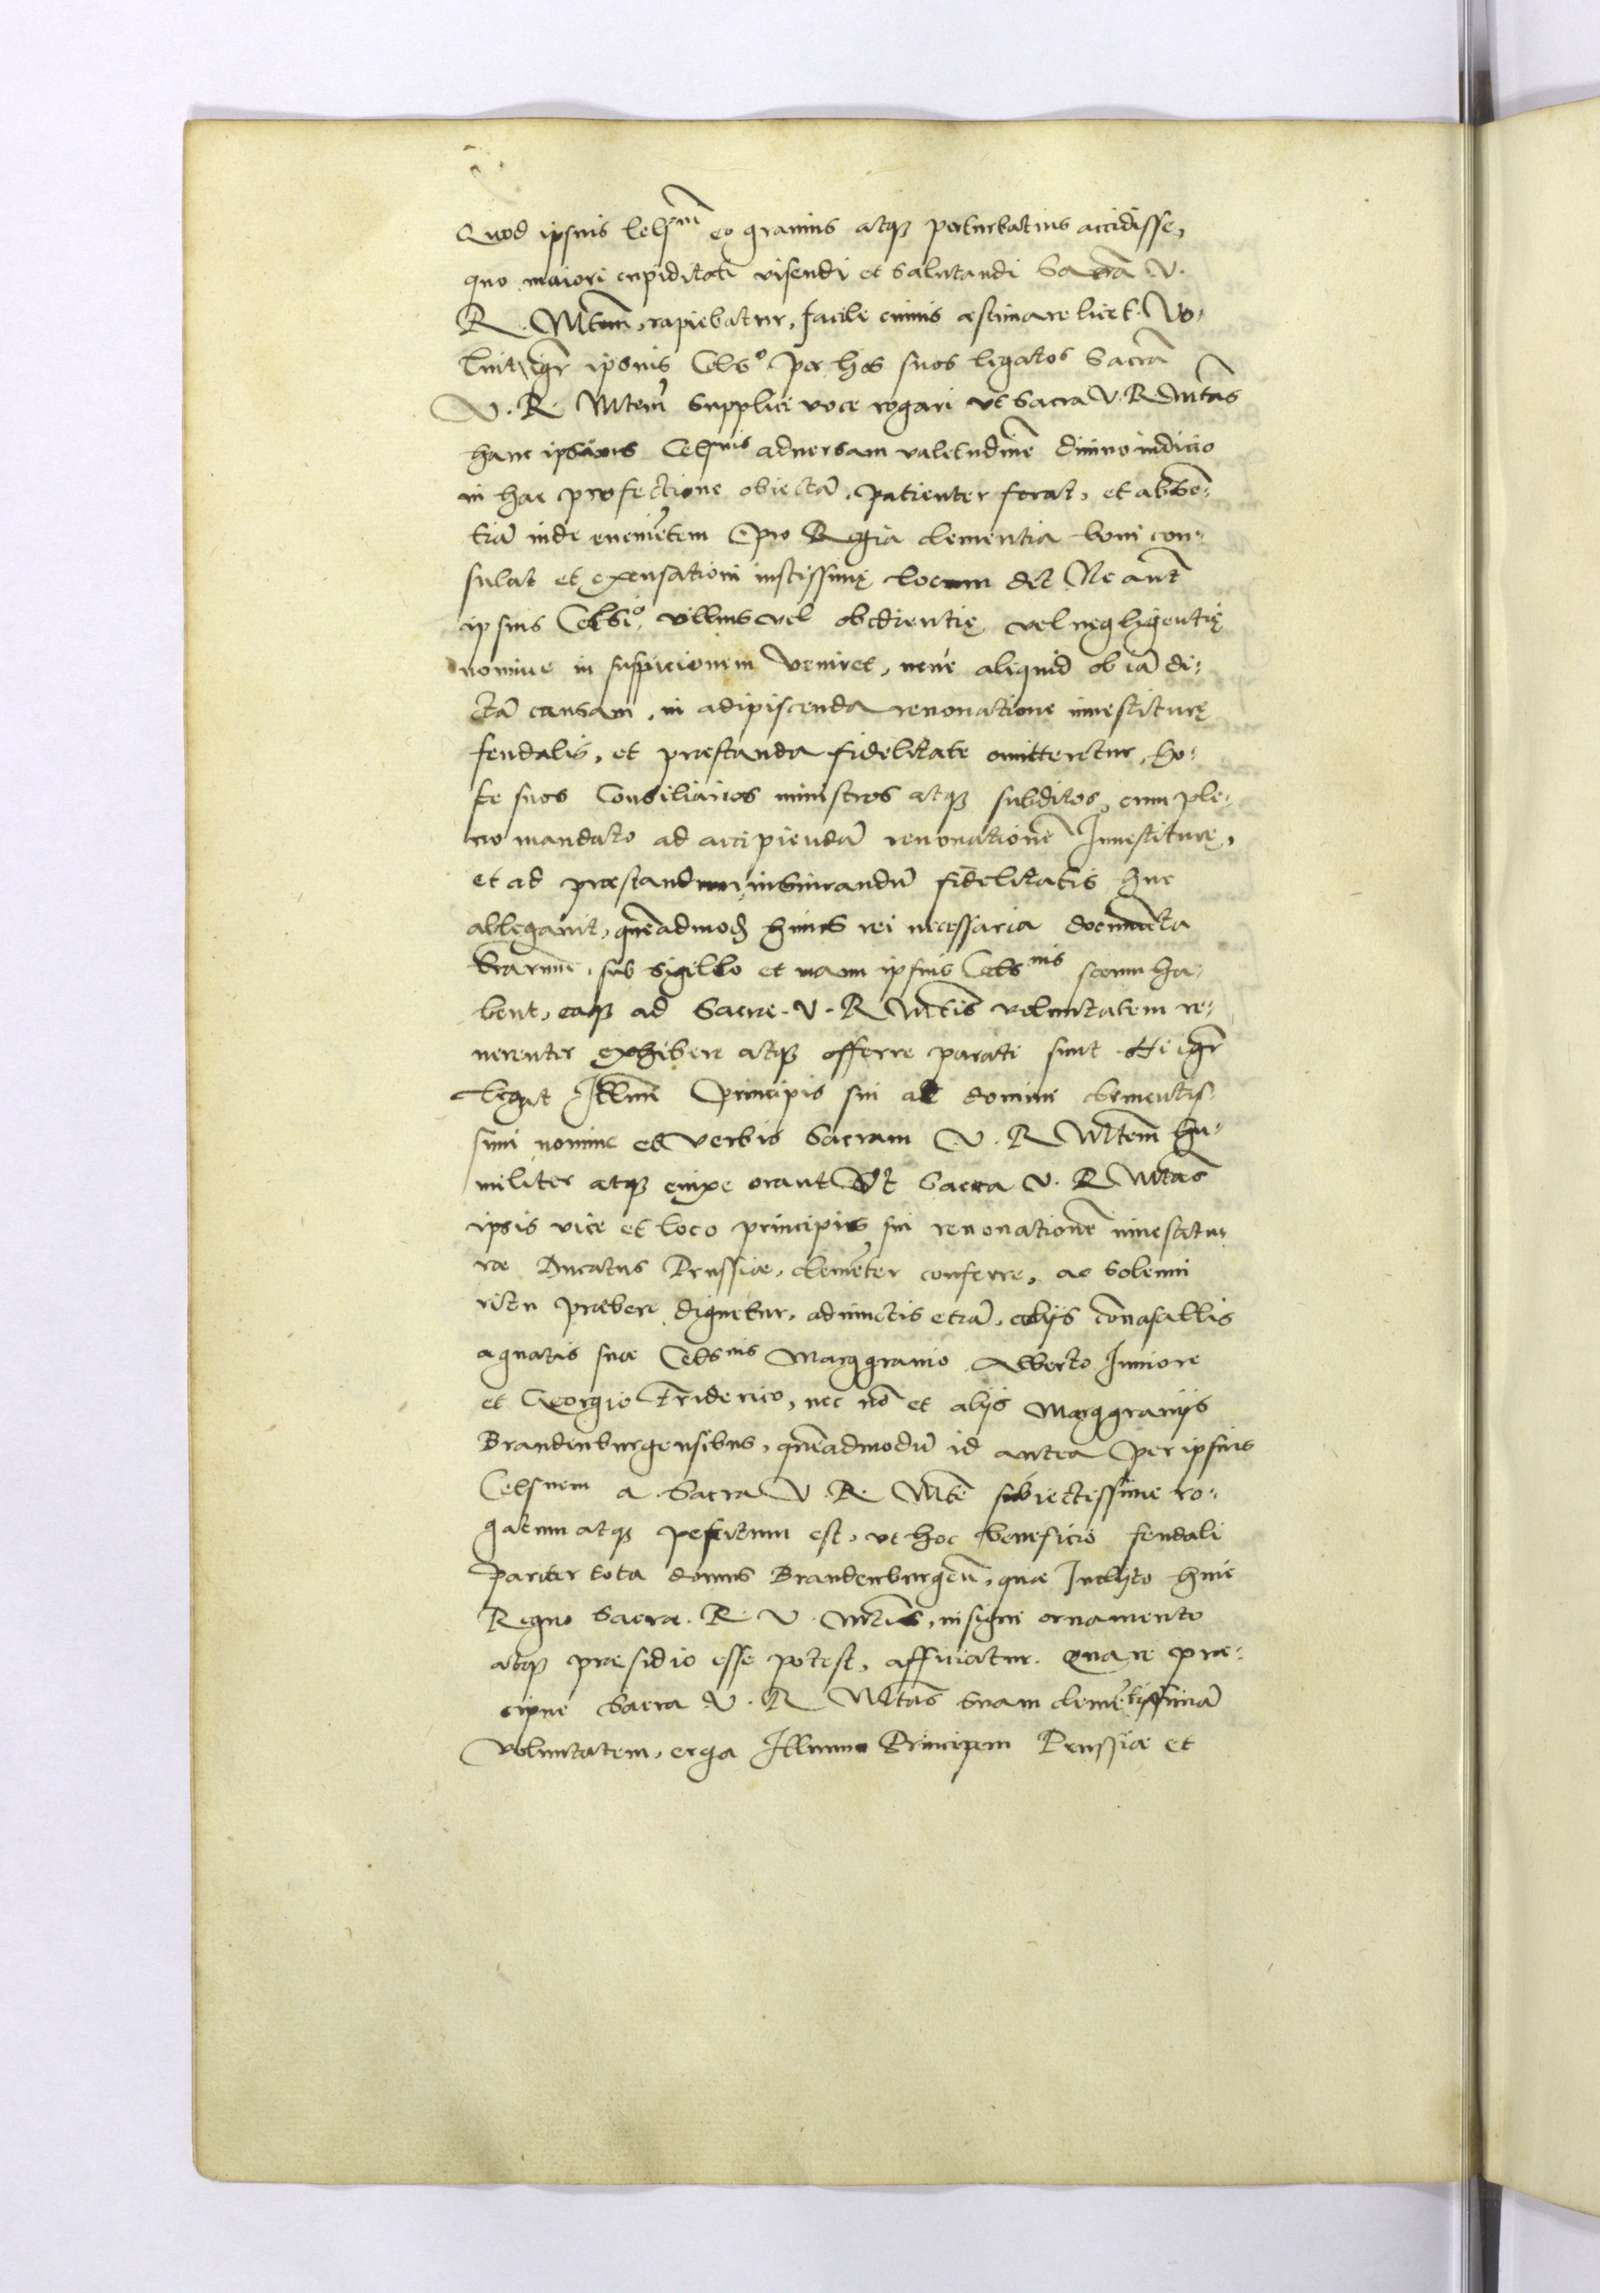 Quod ipsius Celsni eo grauius atq3 perturbatius accidisse,
quo maiori cupiditate visendi et salutandi Sacrā V.
R. Mtem, rapiebatur, facile cuiuis æstimare licet. Vo=
luit igr̄ ipsius Celso per hos suos legatos Sacrā
V. R. Mtem̄ supplici voce rogari vt Sacra V. R. Mtas
hanc ipsius Celsnis aduersam valetudinē diuino iudicio
in hac profectione obiectā, patienter ferat, et absen=
tiā inde eueniētem pro Regia clementia boni con=
sulat et excusationi iustissimę locum det Ne aut̄
ipsius Celsio, vllius vel obedientię vel negligentię
nomine in suspicionem veniret, neue aliquid ob iā di=
ctā causam, in adipiscenda renouatione inuestiturę
feudalis, et præstanda fidelitate omitteretur, ho=
sce suos Consiliarios ministros atq3 subditos, cum ple=
no mandato ad accipiendā renouationē Inuestiturę,
et ad præstandum iusiurandū fidelitatis huc
ablegauit, quēadmod3 huius rei necessaria documēta
sub sigillo et manu ipsius Celsnis secum ha=
bent, eaq3 ad Sacræ V. R Mtis voluntatem re=
uerenter exhibere atq3 offerre parati sunt. Hi igr̄
legati Illmi Principis sui ac domini clementis=
simi nomine et verbis Sacram V. R Mtem̄ hu=
militer atq3 enixe orant Vt Sacra V. R Mtas
ipsis vice et loco principis sui renouationē inuestitu=
ræ Ducatus Prussiæ, clemēter conferre, ac solenni
ritu præbere dignetur, adiunctis etiā, alijs cōuasallis
agnatis suæ Celsnis Marggrauio Alberto Iuniore
et Georgio Friderico, nec nō et alijs Marggrauijs
Brandenburgensibus, quēadmodū id antea per ipsius
Celsnem a Sacra V. R. Mte subiectissime ro=
gatum atq3 petitum est, vt hoc beneficio feudali
pariter tota domus Brandenburgeñ, quæ Inclyto huic
Regno Sacræ. R. V. Mtis, insigni ornamento
atq3 præsidio esse potest, afficiatur. Quare præ=
cipue Sacra V. R Mtas suam clemētissimā
voluntatem, erga Illmum Principem Prussiæ et